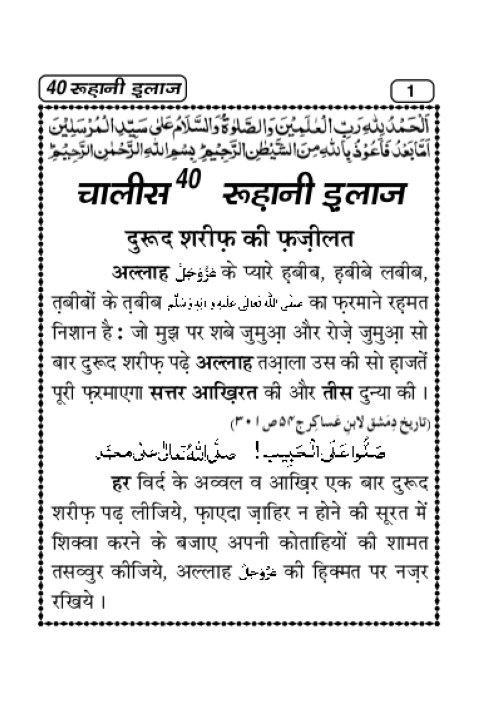 40 रूहानी इलाज
1
اَلْحَمْدُ لِلّٰهِ رَبِّ الْعٰلَمِيْنَ وَالصَّلٰوةُ وَالسَّلَامُ عَلٰى سَيِّدِ الْمُرْسَلِيْنَ
اَمَّا بَعْدُ فَاَعُوْذُ بِاللّٰهِ مِنَ الشَّيْطٰنِ الرَّجِيْمِ بِسْمِ اللّٰهِ الرَّحْمٰنِ الرَّحِيْمِ
चालीस 40 रूहानी इलाज
दुरूद शरीफ़ की फ़ज़ीलत
अल्लाह عَزَّوَجَلَّ के प्यारे ह़बीब, ह़बीबे लबीब,
त़बीबों के त़बीब صلَّى اللّٰه تعالٰى عليه واٰله وسلَّم का फ़रमाने रह़मत
निशान है : जो मुझ पर शबे जुमुआ़ और रोज़े जुमुआ़ सो
बार दुरूद शरीफ़ पढ़े अल्लाह तआ़ला उस की सो ह़ाजतें
पूरी फ़रमाएगा सत्तर आख़िरत की और तीस दुन्या की ।
(تاریخ دِمَشق لابنِ عَساکِر ج ٥٤ ص ٣٠١)
صَلُّوا عَلَى الْحَبِيب! صلَّى اللّٰهُ تعالٰى علٰى محمَّد
हर विर्द के अव्वल व आख़िर एक बार दुरूद
शरीफ़ पढ़ लीजिये, फ़ाएदा ज़ाहिर न होने की सूरत में
शिक्वा करने के बजाए अपनी कोताहियों की शामत
तसव्वुर कीजिये, अल्लाह عَزَّوَجَلَّ की ह़िक्मत पर नज़र
रखिये ।